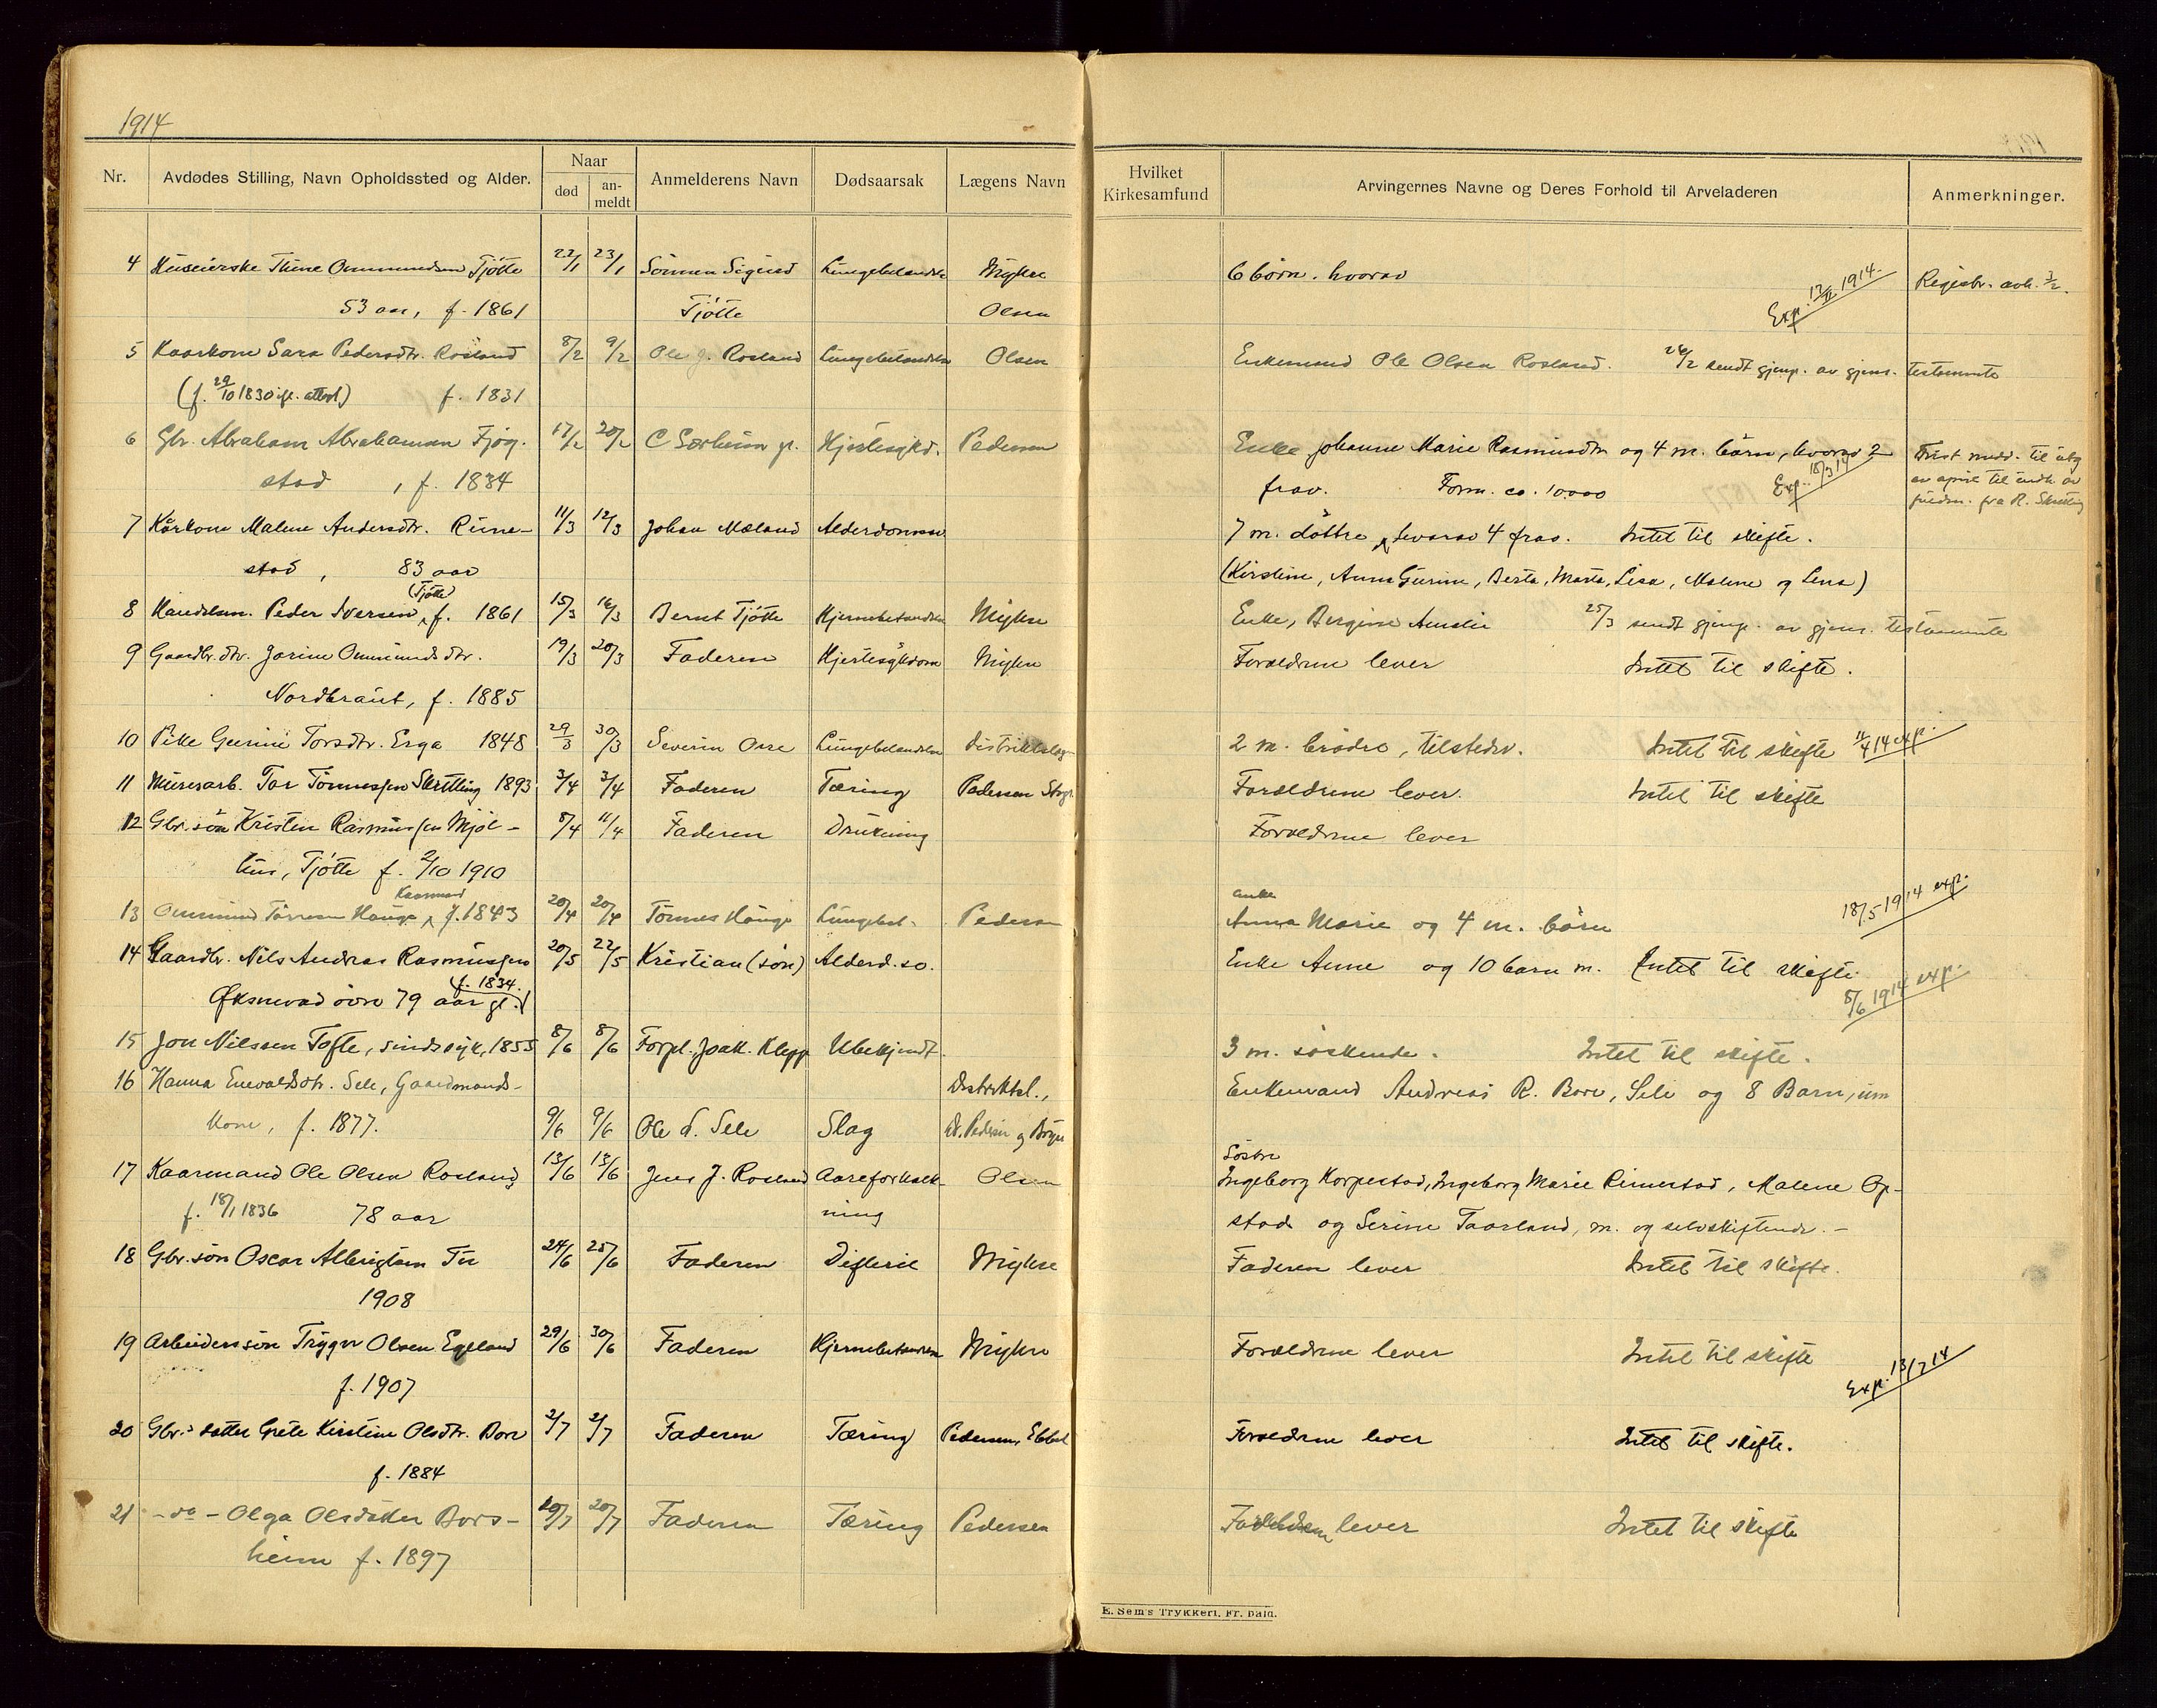 1914
Nr.
Avdødes Stilling, Navn Opholdssted og Alder.
Naar
død
an-
meldt
Anmelderens Navn
Dødsaarsak
Lægens Navn
Hvilket
Kirkesamfund
Arvingernes Navne og Deres Forhold til Arveladeren
Anmerkninger.
4 Huseierske Thine Ommundsen Tjøtte 22/1 23/1 Sønnen Sigurd Lungebetændelse Myhre 6 børn. hvorav
53 aar, f. 1861 Tjøtte Olsen Exp. 13/2 1914. Registr. avh. 3/2.
5 Kaarkone Sara Pedersdtr. Rosland 8/2 9/2 Ole J. Rosland Lungebetændelse Olsen Enkemand Ole Olsen Rosland. 26/2 sendt gjenp. av gjens. testamente
(f. 29/10 1830 ifl. attest) f. 1831
6 Gbr. Abraham Abrahamsen Fjog- 17/2 20/2 C Serheim gr. Hjertesykd. Pedersen Enke Johanne Marie Rasmusdtr og 4 m. børn, hvorav 2
stad , f. 1834 frav. Form. ca. 10.000 Exp. 18/3 14
7 Kårkone Malene Andersdtr. Rime- 11/3 12/3 Johan Mæland Alderdomssv. 7 m. døttre, hvorav 4 frav. Intet til skifte.
stad, 83 aar (Kirstine, Anna Gurine, Berta, Marta, Lisa, Malene og Lena)
8 Handelsm. Peder Iversen (Tjøtte) f. 1861 15/3 16/3 Bernt Tjøtte Hjernebetændelse Myhre Enke, Bergine Amalie 25/3 sendt gjenp. av gjens. testamente
9 Gaardbr.dtr. Jorine Ommundsdtr. 19/3 20/3 Faderen Hjertesykdom Myhre Forældrene lever Intet til skifte.
Nordbraut, f. 1885
10 Pike Gurine Torsdtr. Erga 1848 29/3 30/3 Severin Orre Lungebetændelse Distriktslæg 2 m. brødre, tilstedev. Intet til skifte 11/4 14 exp.
11 Murerarb. Tor Tønnessen Skrettling 1893 3/4 3/4 Faderen Tæring Pedersen Forældrene lever. Intet til skifte
12 Gbr.søn Kristen Rasmussen Mjøl- 8/4 11/4 Faderen Drukning Forældrene lever
hus, Tjøtte f. 2/10 1910
13 Ommund Tørresen Hauge Kaarmand f. 1843 20/4 20/4 Tønnes Hauge Lungebet. Pedersen enke Anna Marie og 4 m. børn 18/5 1914 exp.
14 Gaardbr. Nils Andreas Rasmussen 20/5 22/5 Kristian (søn) Alderd.sv. Enke Anne og 10 barn m. Intet til skifte
Øksnevad øvre 79 aar gl. (f. 1834.) 8/6 1914 exp.
15 Jon Nilssen Tofte, sindssyk, 1855 8/6 8/6 Forpl. Joak. Klepp Ubekjendt. 3 m. søskende. Intet til skifte.
16 Hanna Enevaldsdtr. Sele, Gaardmands- Distriktsl., Enkemand Andreas R. Bore, Sele og 8 Barn, um
kone, f. 1877. 9/6 9/6 Ole A. Sele Slag Pedersen og
17 Kaarmand Ole Olsen Rosland 13/6 13/6 Jens J. Rosland Aareforkalk- Olsen Søstre Ingeborg Horpestad, Ingeborg Marie Rimestad, Malene Op-
f. 18/1 1836 78 aar ning stad og Serine Taarland, m. og selvskiftende. –
18 Gbr.søn Oscar Albrigtsen Tu 24/6 25/6 Faderen Difterie Myhre Faderen lever Intet til skifte.
1908
19 Arbeiderssøn Trygve Olsen Egeland 29/6 30/6 Faderen Hjernebetændelse Myhre Forældrene lever Intet til skifte
f. 1907 Exp. 13/7 14
20 Gbr.s datter Grete Kirstine Olsdtr. Bore 2/7 2/7 Faderen Tæring Pedersen, Ebbel Forældrene lever Intet til skifte.
f. 1884
21 – do – Olga Olsdatter Bors- 20/7 20/7 Faderen Tæring Pedersen Forældrene lever Intet til skifte
heim f. 1897
E. Sem's Trykkeri, Fr. hald.